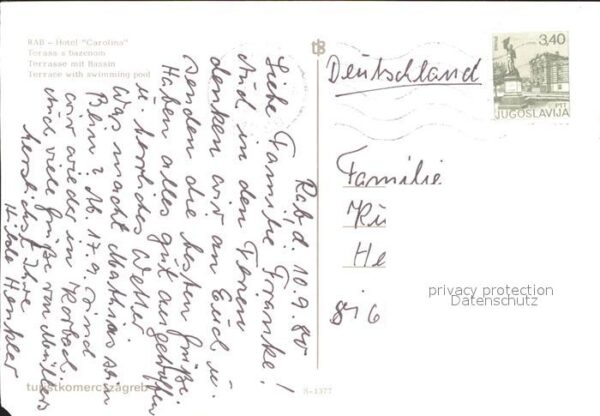 RAB – Hotel "Carolina"
Terasa s bazenom
Terrasse mit Bassin
Terrace with swimming pool
Rab, d. 10.9.80
Liebe Familie Franke!
Auch in den Ferien
denken wir an Euch u.
senden die besten Grüße.
Haben alles gut angetroffen
u. herrliches Wetter.
Was macht Mathias sein
Bein? Ab 17.9. sind
wir wieder in Korbach.
Auch viele Grüße von Müllers
herzlichst Ihre
Hilde Henkler
turistkomerc zagreb
S-1377
3,40
PTT
JUGOSLAVIJA
Deutschland
Familie
Ku
He
privacy protection
Datenschutz